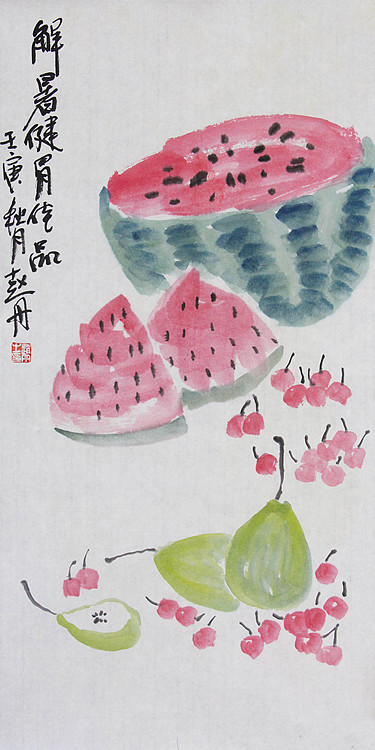 解暑健胃佳品
壬寅秋月赵丹